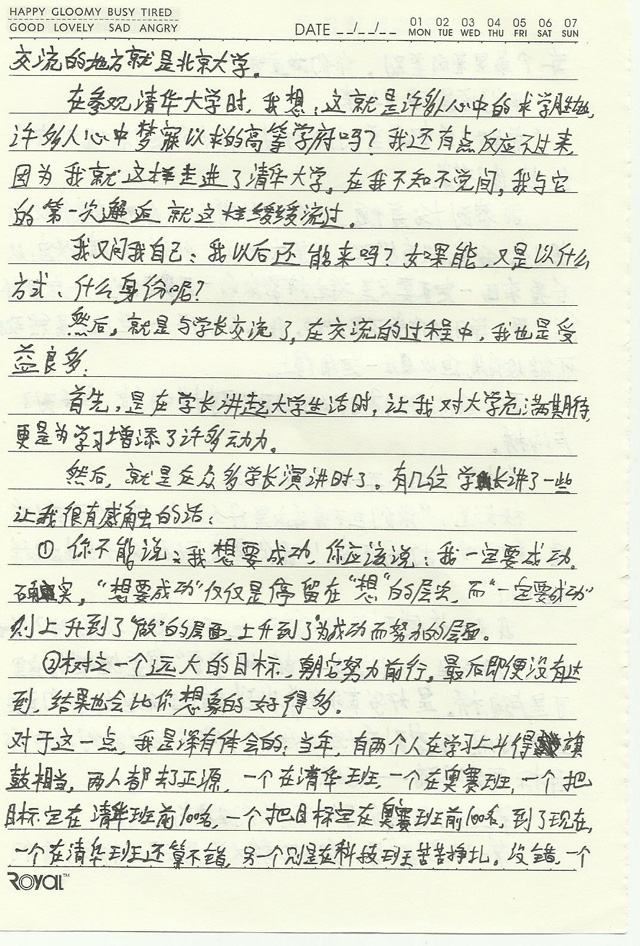 HAPPY GLOOMY BUSY TIRED
GOOD LOVELY SAD ANGRY
DATE _/_/_
01 02 03 04 05 06 07
MON TUE WED THU FRI SAT SUN
交流的地方就是北京大学。
在参观清华大学时，我想：这就是许多人心中的求学胜地，
许多人心中梦寐以求的高等学府吗？我还有点反应不过来
因为我就这样走进了清华大学，在我不知不觉间，我与它
的第一次邂逅就这样缓缓流过。
我又问我自己：我以后还能来吗？如果能，又是以什么
方式、什么身份呢？
然后，就是与学长交流了，在交流的过程中，我也是受
益良多：
首先，是在学长讲起大学生活时，让我对大学充满期待，
更是为学习增添了许多动力。
然后，就是在众多学长演讲时了。有几位学长讲了一些
让我很有感触的话：
① 你不能说：我想要成功，你应该说：我一定要成功。
确实，“想要成功”仅仅是停留在“想”的层次，而“一定要成功”
则上升到了“做”的层面，上升到了为成功而努力的层面。
②树立一个远大的目标，朝它努力前行，最后即便没有达
到，结果也会比你想象的要好得多。
对于这一点，我是深有体会的：当年，有两个人在学习上斗得旗
鼓相当，两人都去了正源，一个在清华班，一个在奥赛班，一个把
目标定在清华班前100名，一个把目标定在奥赛班前100名，到了现在，
一个在清华班还算不错，另一个则是在科技班苦苦挣扎。没错，一个
ROYAL™